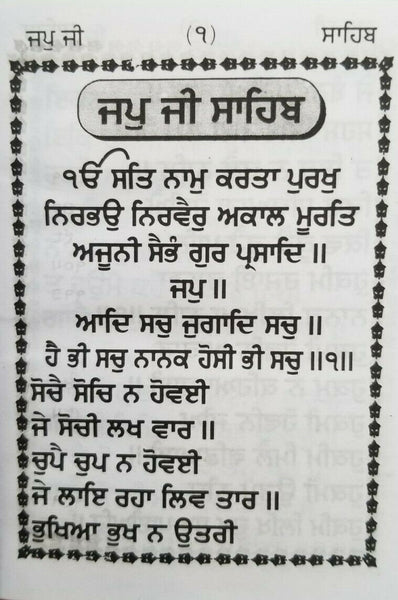 ਜਪੁ ਜੀ (੧) ਸਾਹਿਬ
ਜਪੁ ਜੀ ਸਾਹਿਬ
ੴ ਸਤਿ ਨਾਮੁ ਕਰਤਾ ਪੁਰਖੁ
ਨਿਰਭਉ ਨਿਰਵੈਰੁ ਅਕਾਲ ਮੂਰਤਿ
ਅਜੂਨੀ ਸੈਭੰ ਗੁਰ ਪ੍ਰਸਾਦਿ ॥
ਜਪੁ ॥
ਆਦਿ ਸਚੁ ਜੁਗਾਦਿ ਸਚੁ ॥
ਹੈ ਭੀ ਸਚੁ ਨਾਨਕ ਹੋਸੀ ਭੀ ਸਚੁ ॥੧॥
ਸੋਚੈ ਸੋਚਿ ਨ ਹੋਵਈ
ਜੇ ਸੋਚੀ ਲਖ ਵਾਰ ॥
ਚੁਪੈ ਚੁਪ ਨ ਹੋਵਈ
ਜੇ ਲਾਇ ਰਹਾ ਲਿਵ ਤਾਰ ॥
ਭੁਖਿਆ ਭੁਖ ਨ ਉਤਰੀ